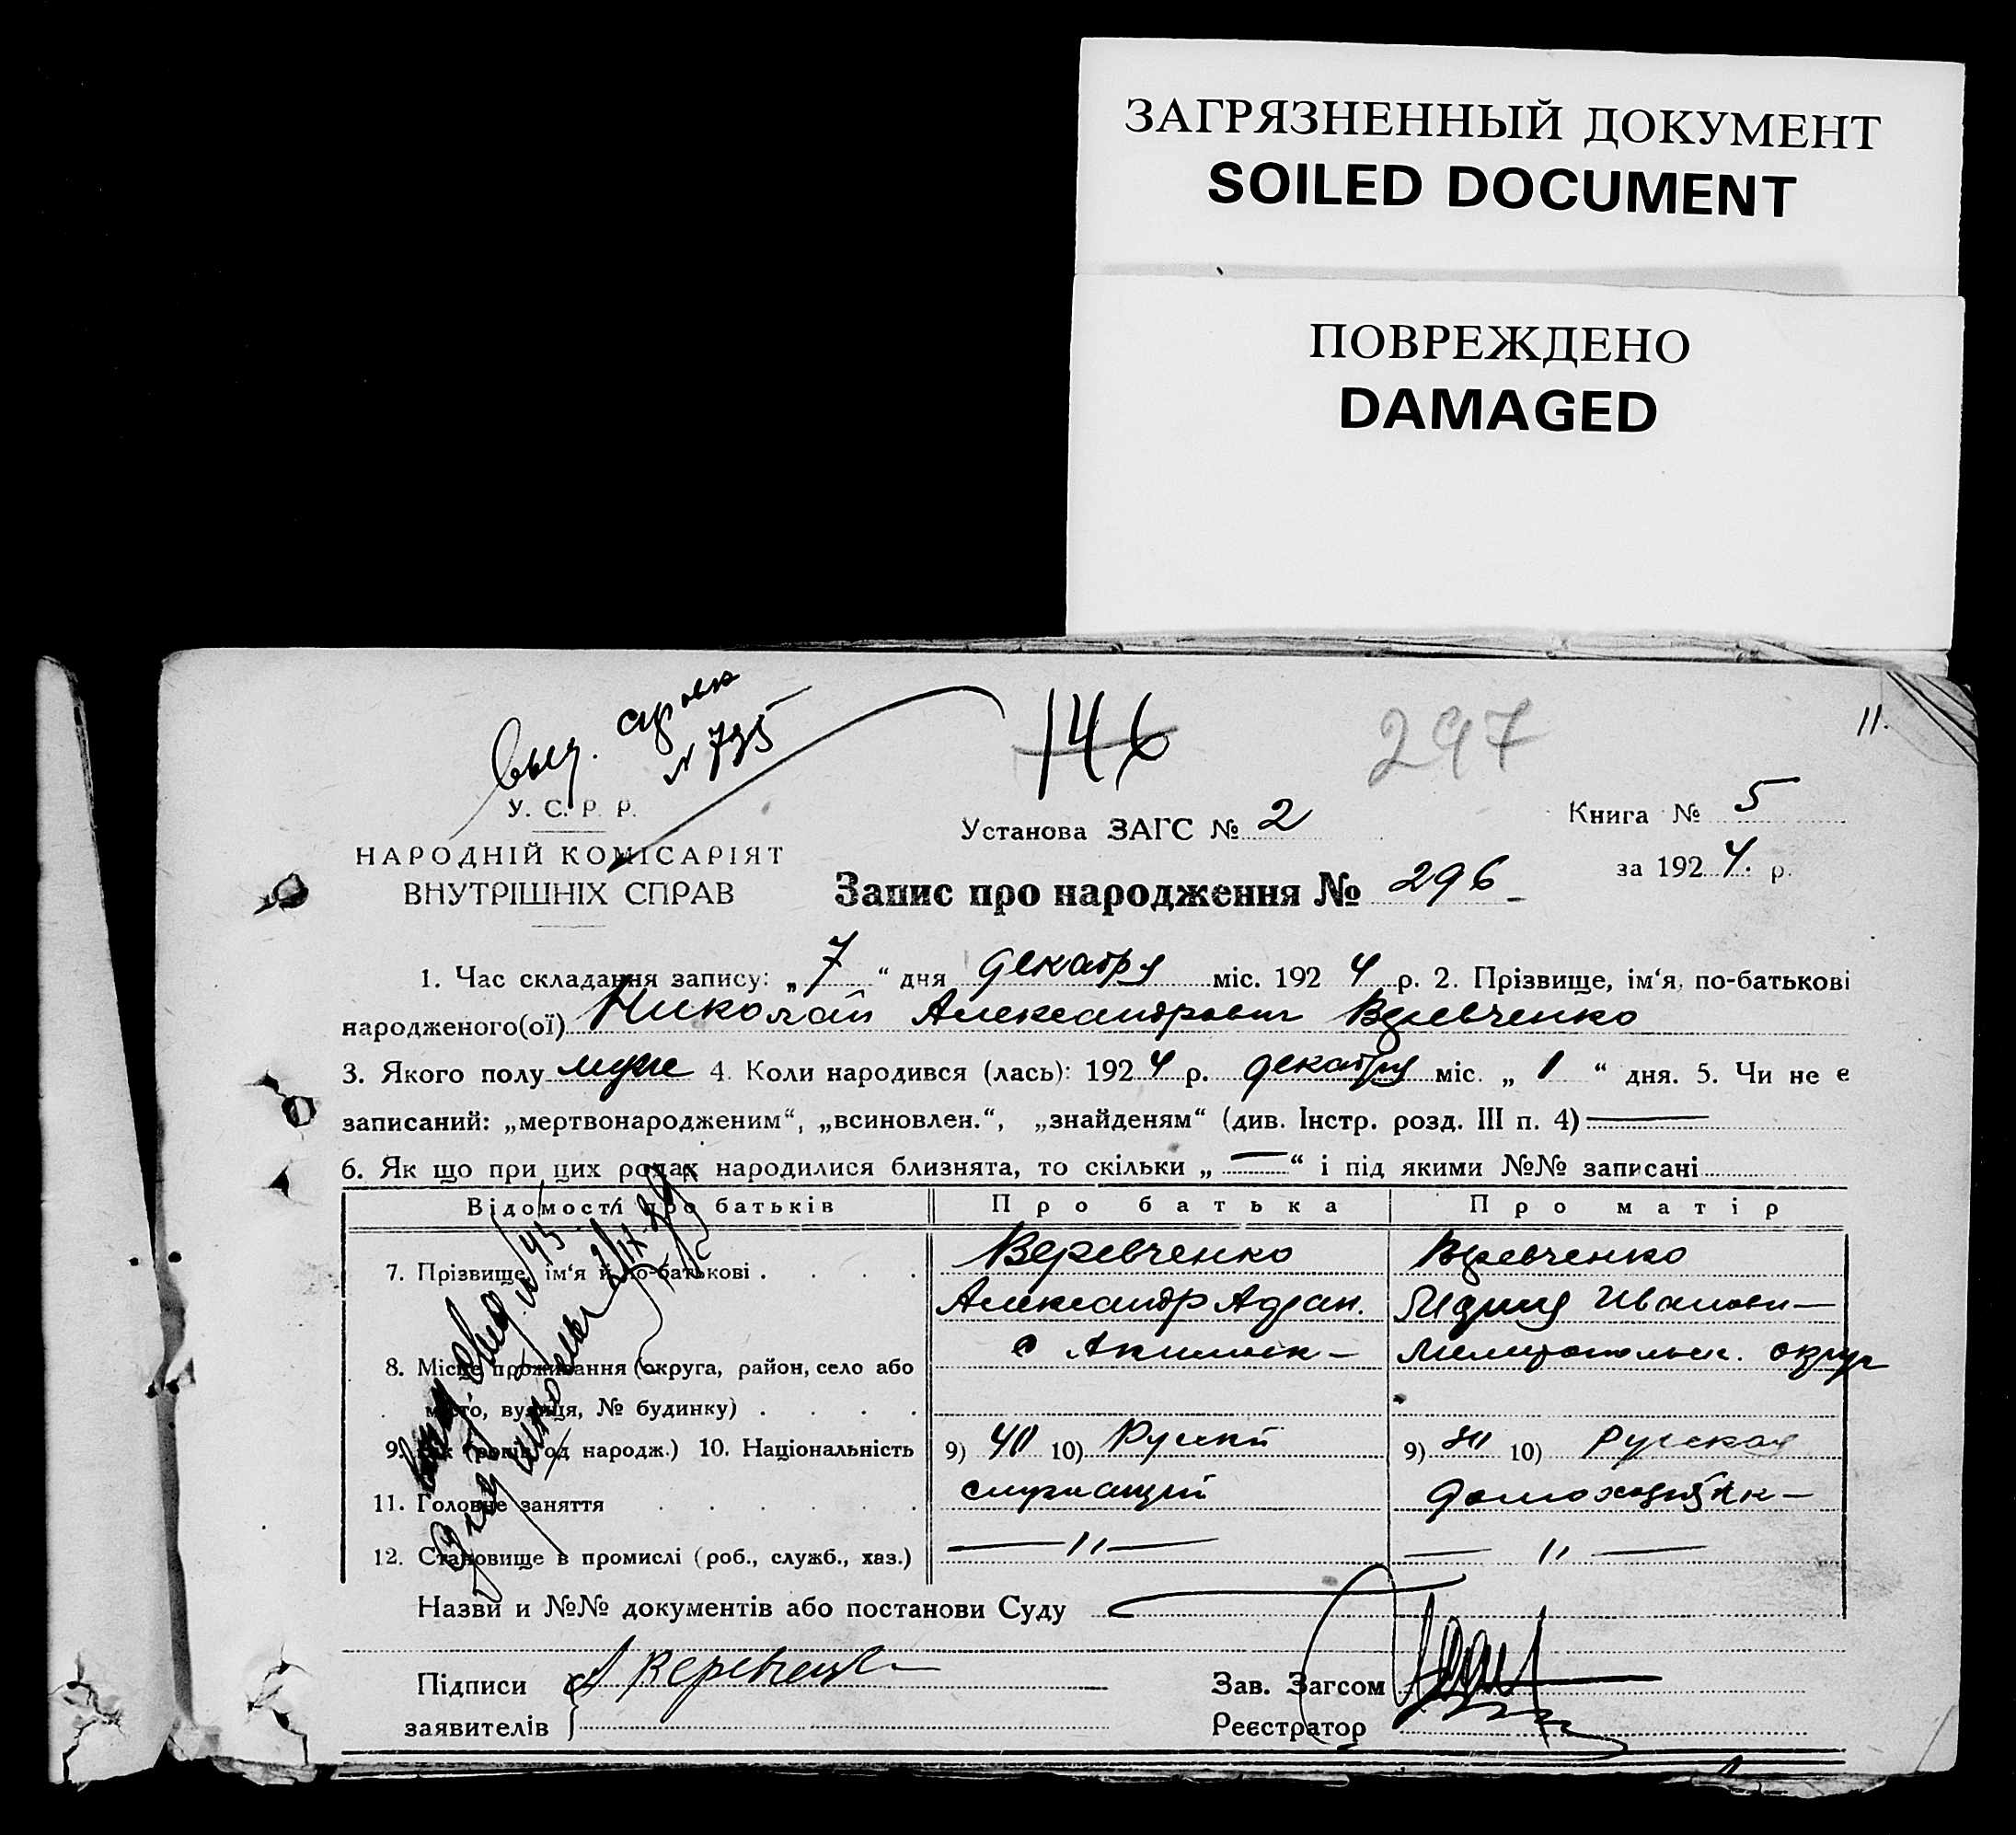 ЗАГРЯЗНЕННЫЙ ДОКУМЕНТ
SOILED DOCUMENT
ПОВРЕЖДЕНО
DAMAGED
11.
146
297
N 735
У. С. Р. Р.
НАРОДНІЙ КОМІСАРІЯТ
ВНУТРІШНІХ СПРАВ
Установа ЗАГС № 2
Книга № 5
за 1924. р.
Запис про народження № 296
1. Час складання запису: „7“ дня декабря міс. 1924 р. 2. Прізвище, ім‘я, по-батькові
народженого(ої) Николай Александрович Веревченко
3. Якого полу муже 4. Коли народився (лась): 1924 р. декабря міс. „1“ дня. 5. Чи не є
записаний: „мертвонародженим“, „всиновлен.“, „знайденям“ (див. Інстр. розд. III п. 4) —
6. Як що при цих родах народилися близнята, то скільки „—“ і під якими №№ записані
Відомості про батьків Про батька Про матір
7. Прізвище, ім‘я й по-батькові Веревченко Веревченко
Александр Ивановн—
8. Місце проживання (округа, район, село або с Акимовк— Мелитопольск. округ
місто, вулиця, № будинку)
9. Вік (років од народж.) 10. Національність 9) 40 10) Руский 9) 10) Русская
11. Головне заняття служащий домохозяйк—
12. Становище в промислі (роб., служб., хаз.) —〃— —〃—
Назви и №№ документів або постанови Суду
Підписи
заявителів
А Веревченко
Зав. Загсом
Реєстратор